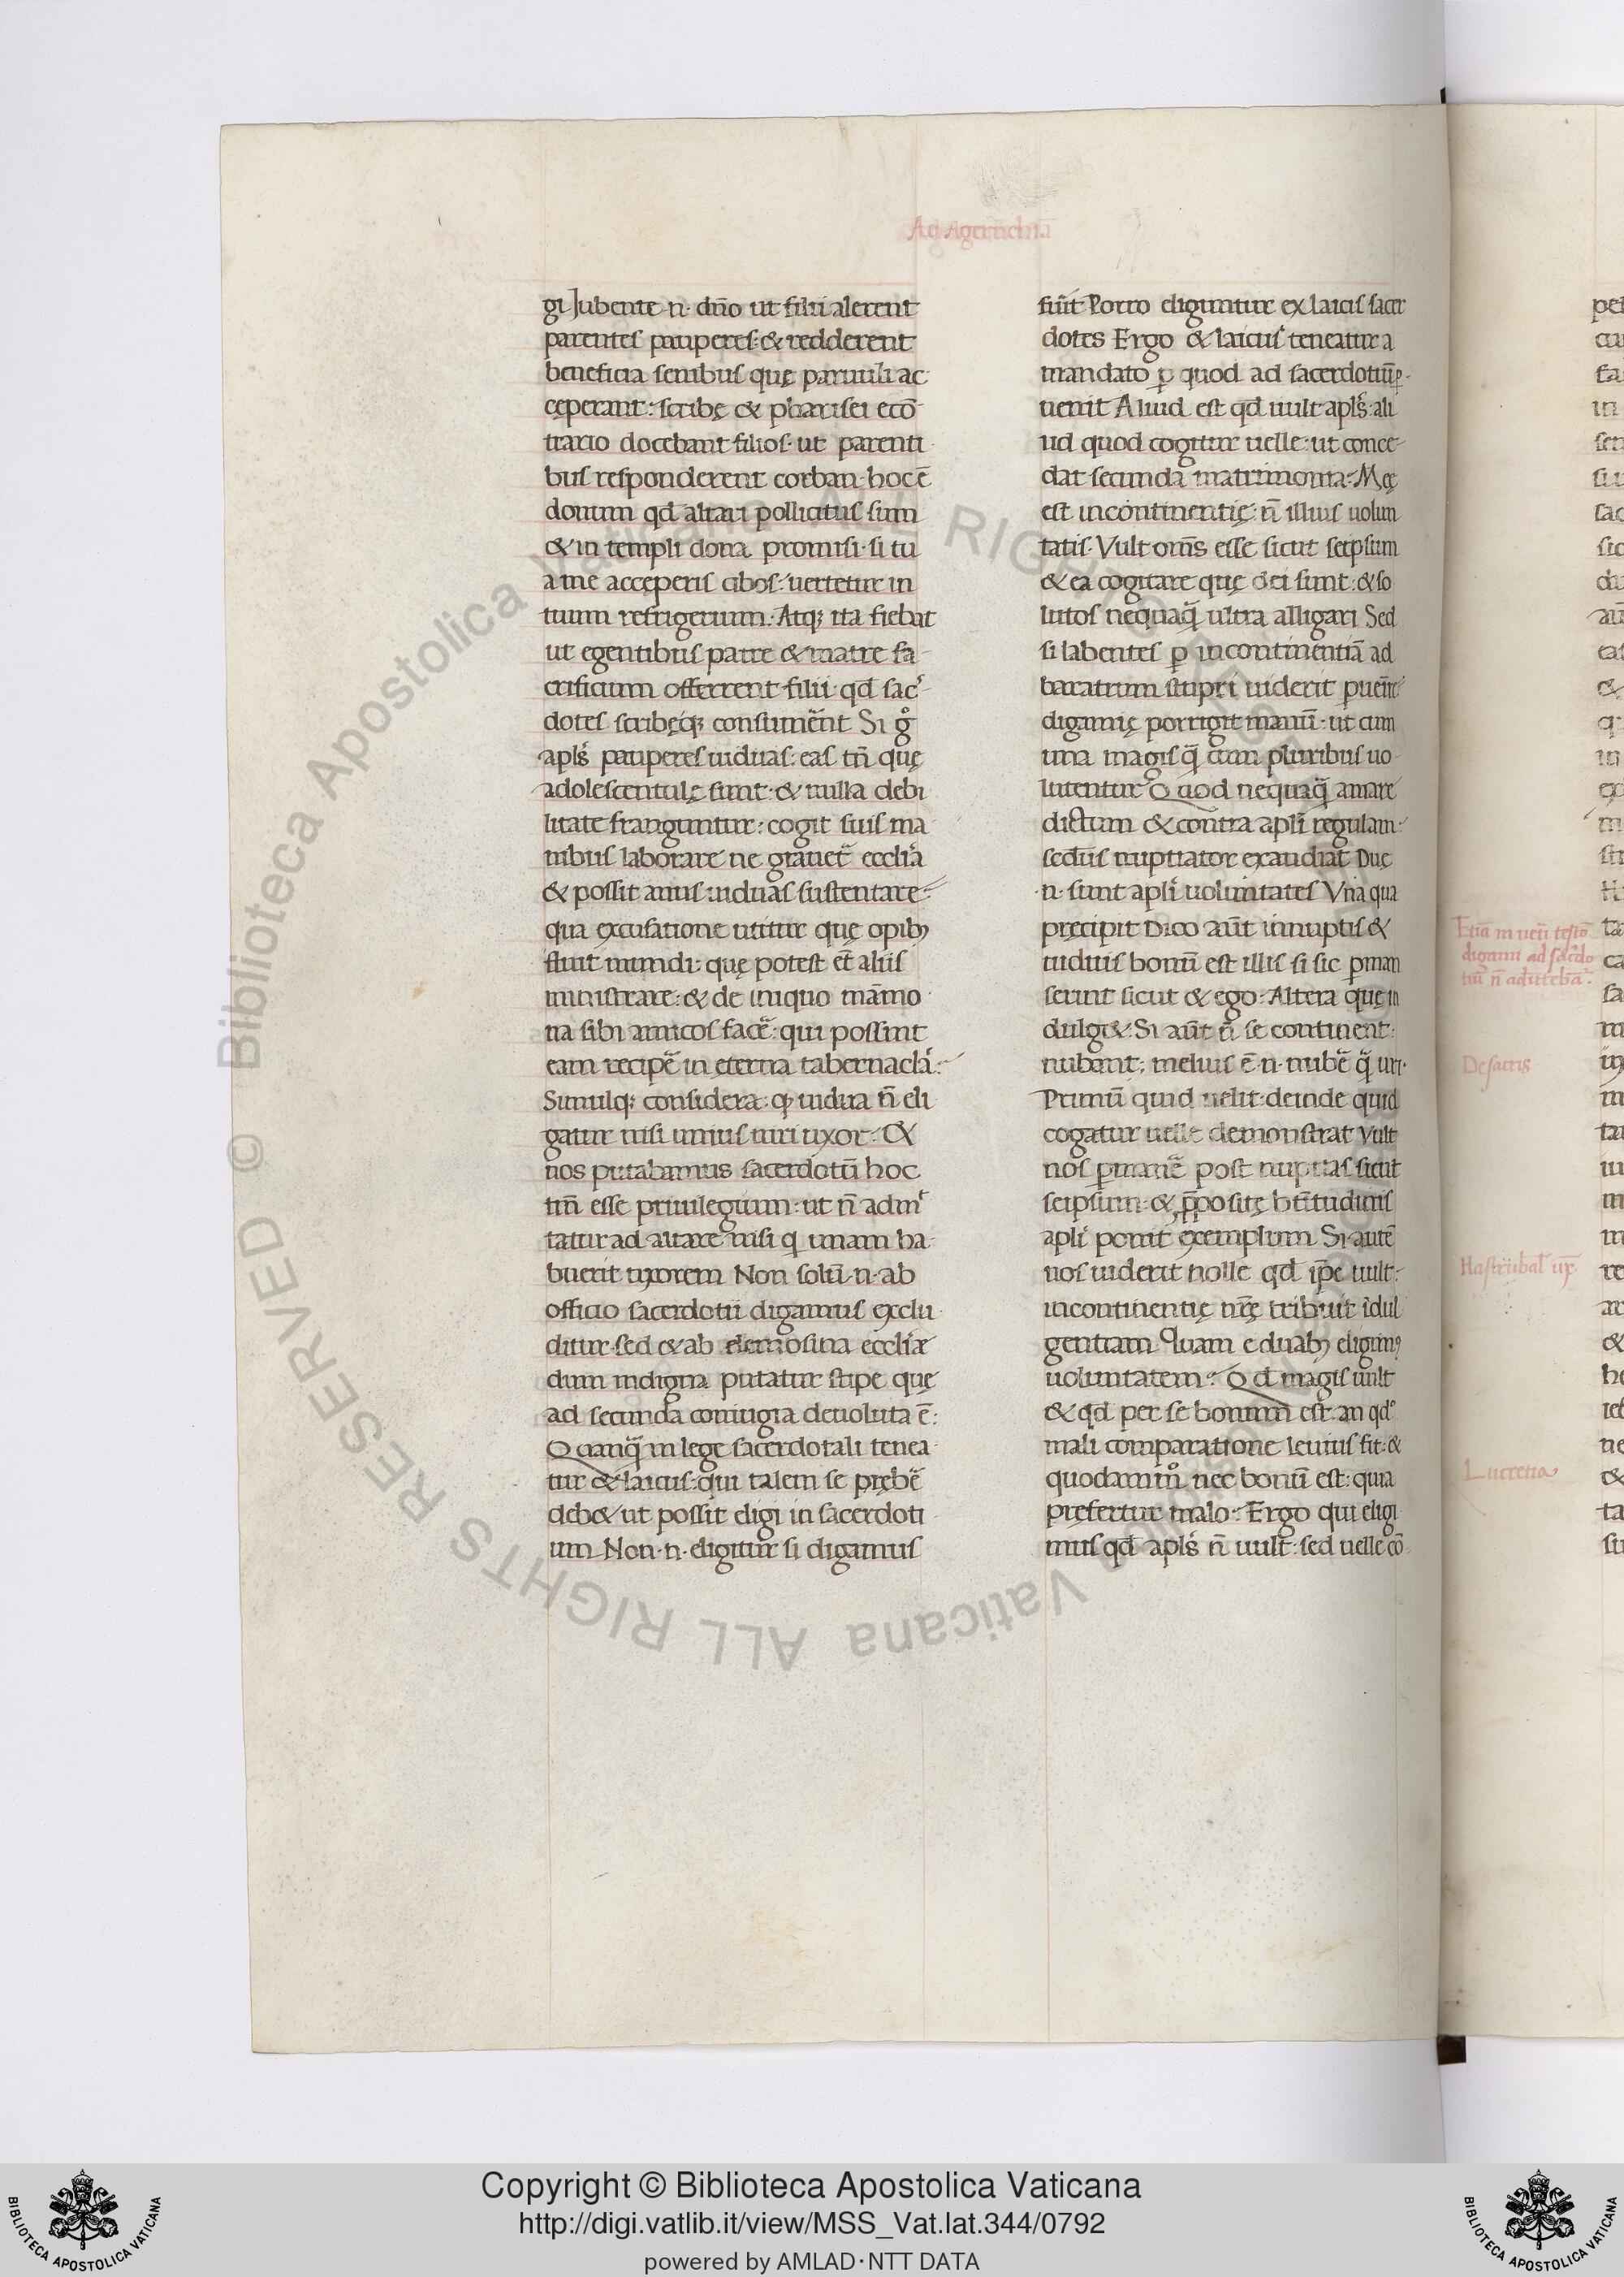 Ad Ageruchiã
gi Jubente·n·dño ut filii alerent
parentes pauperes:& redderent
beneficia senibus quę paruuli ac
cęperant: scribę & pharisei ecõ
trario docebant filios·ut parenti
bus responderent corban·hoc ē
donum qđ altari pollicitus sum
& in templi dona promisi·si tu
a me acceperis cibos: uertetur in
tuum refrigerium: Atq; ita fiebat
ut egentibus patre & matre sa
crificium offerrent filii·qđ sac̉
dotes scribęq; consumẽnt Si g̊
apl̃s pauperes uiduas: eas tñ quę
adolescentulę sunt·& nulla debi
litate franguntur: cogit suis ma
nibus laborare ne grauet̃ eccl̃ia
& possit anus uiduas sustentare:
qua excusatione utitur quę opib;
fluit mundi: quę potest et̃ aliis
ministrare: & de iniquo mãmo
na sibi amicos facẽ: qui possint
eam recipẽ in ęterna tabernacl̃a:
Simulq; considera: qꝫ uidua ñ eli
gatur nisi unius uiri uxor: &
nos putabamus sacerdotũ hoc
tm̃ esse priuilegium: ut ñ admi
tatur ad altare nisi q unam ha
buerit uxorem Non solũ·n·ab
officio sacerdotii digamus exclu
ditur·sed & ab elemosina eccl̃iæ
dum indigna putatur stipe quę
ad secunda coniugia deuoluta ē:
Quanq̃ in lege sacerdotali tenea
tur & laicus: qui talem se prębẽ
deb& ut possit eligi in sacerdoti
um Non·n·eligitur si digamus
fuĩt Porro eliguntur ex laicis sacer
dotes Ergo & laicus teneatur a
mandato ꝑ quod ad sacerdotiũ ꝑ
uenit Aliud est qđ uult apl̃s: ali
ud quod cogitur uelle: ut conce
dat secunda matrimonia: Meę
est incontinentię: ñ illius uolun
tatis· Vult om̃s esse sicut seipsum
& ea cogitare quę dei sunt: & so
lutos nequaq̃ ultra alligari Sed
si labentes ꝑ incontinentiã ad
baratrum stupri uiderit ꝑuenir̃
digamię porrigit manũ: ut cum
una magis q̃ cum pluribus uo
lutentur Quod nequaq̃ amare
dictum & contra apl̃i regulam:
secdus nuptiator exaudiat Duę
·n·sunt apl̃i uoluntates Vna qua
pręcipit Dico aũt innuptis &
uiduis bonũ est illis si sic ꝑman
serint sicut & ego: Altera quę in
dulg&: Si aũt ñ se continent:
nubant: melius ē·n·nubẽ q̃ uri·
Primũ quid uelit·deinde quid
cogatur uelle demonstrat Vult
nos ꝑmanẽ post nuptias sicut
seipsum: & ꝓposite btitudinis
apl̃i ponit exemplum Si autẽ
nos uiderit nolle qđ ip̃e uult:
incontinentię nr̃ę tribuit ĩdul
gentiam Quam e duab; eligim;
uoluntatem: Qđ magis uult
& qđ per se bonum est: an qđ
mali comparatione leuius fit: &
quodammo nec bonũ est: quia
pręfertur malo: Ergo qui eligi
mus qđ apl̃s ñ uult: sed uelle cõ
Etiã in uetĩ testõ
digami ad sacerdo
tiũ ñ aditebãt.
De sacris
Hastrubal' ux̃
Lucretia
Copyright © Biblioteca Apostolica Vaticana
http://digi.vatlib.it/view/MSS_Vat.lat.344/0792
powered by AMLAD·NTT DATA
BIBLIOTECA APOSTOLICA VATICANA
BIBLIOTECA APOSTOLICA VATICANA
© Biblioteca Apostolica Vaticana ALL RIGHTS RESERVED